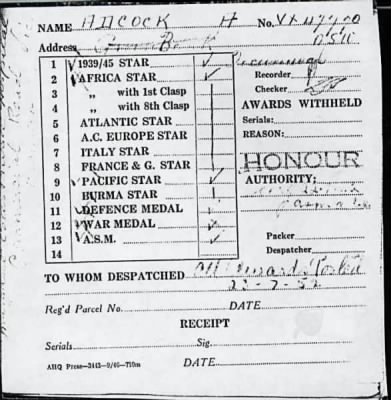 NAME ADCOCK H No. VX
Address
1 1939/45 STAR
2 AFRICA STAR
3 „ with 1st Clasp
4 „ with 8th Clasp
5 ATLANTIC STAR
6 A.C. EUROPE STAR
7 ITALY STAR
8 FRANCE & G. STAR
9 PACIFIC STAR
10 BURMA STAR
11 DEFENCE MEDAL
12 WAR MEDAL
13 A.S.M.
14
Recorder
Checker
AWARDS WITHHELD
Serials:
REASON:
HONOUR
AUTHORITY:
Packer
Despatcher
TO WHOM DESPATCHED
22-7-52
Reg'd Parcel No. DATE
RECEIPT
Serials Sig.
AHQ Press—3443—9/46—750m DATE